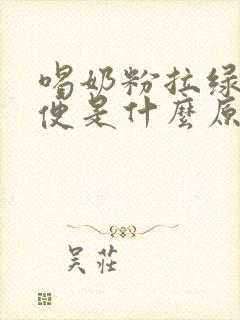 喝奶粉拉绿
便是什麼原
吴莊